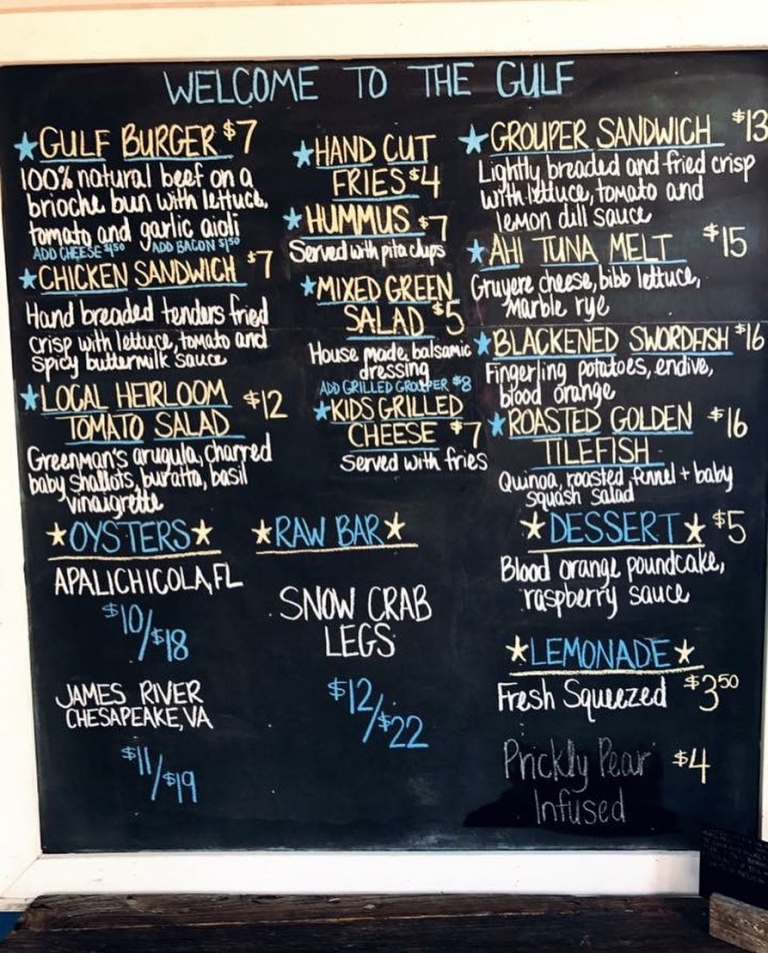 WELCOME TO THE GULF
★GULF BURGER $7
100% natural beef on a
brioche bun with lettuce,
tomato and garlic aioli
ADD CHEESE $1.50 ADD BACON $1.50
★CHICKEN SANDWICH $7
Hand breaded tenders fried
crisp with lettuce, tomato and
spicy buttermilk sauce
★LOCAL HEIRLOOM $12
TOMATO SALAD
Greenman's arugula, charred
baby shallots, buratta, basil
vinaigrette
★OYSTERS★
APALICHICOLA, FL
$10/$18
JAMES RIVER
CHESAPEAKE, VA
$11/$19
★HAND CUT
FRIES $4
★HUMMUS $7
Served with pita chips
★MIXED GREEN
SALAD $5
House made balsamic
dressing
ADD GRILLED GROUPER $8
★KIDS GRILLED
CHEESE $7
Served with fries
★RAW BAR★
SNOW CRAB
LEGS
$12/$22
★GROUPER SANDWICH $13
Lightly breaded and fried crisp
with lettuce, tomato and
lemon dill sauce
★AHI TUNA MELT $15
Gruyere cheese, bibb lettuce,
Marble rye
★BLACKENED SWORDFISH $16
Fingerling potatoes, endive,
blood orange
★ROASTED GOLDEN $16
TILEFISH
Quinoa, roasted fennel + baby
squash salad
★DESSERT★ $5
Blood orange poundcake,
raspberry sauce
★LEMONADE★
Fresh Squeezed $3.50
Prickly Pear $4
Infused